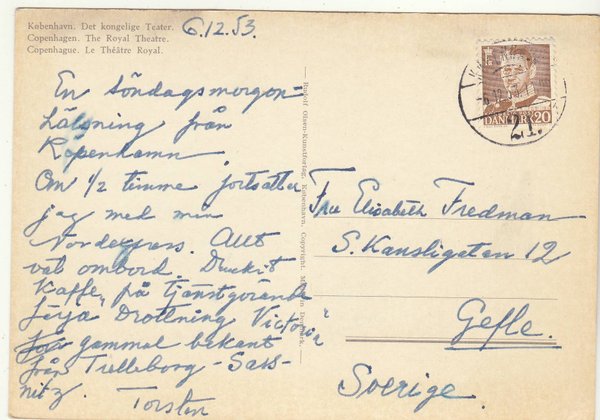 København. Det kongelige Teater.
Copenhagen. The Royal Theatre.
Copenhague. Le Théâtre Royal.
6.12.53.
En söndagsmorgon-
hälsning från
Köpenhamn.
Om 1/2 timme fortsätter
jag med min
Nordexpress. Allt
väl ombord. Druckit
Kaffe på tjänstgörande
färja Drottning Victoria
gammal bekant
från Trelleborg - Sass-
nitz. Torsten
Rudolf Olsens Kunstforlag, København. Copyright. Made in Denmark.
DANMARK 20
21.
Fru Elisabeth Fredman
S. Kansligatan 12
Gefle.
Sverige.